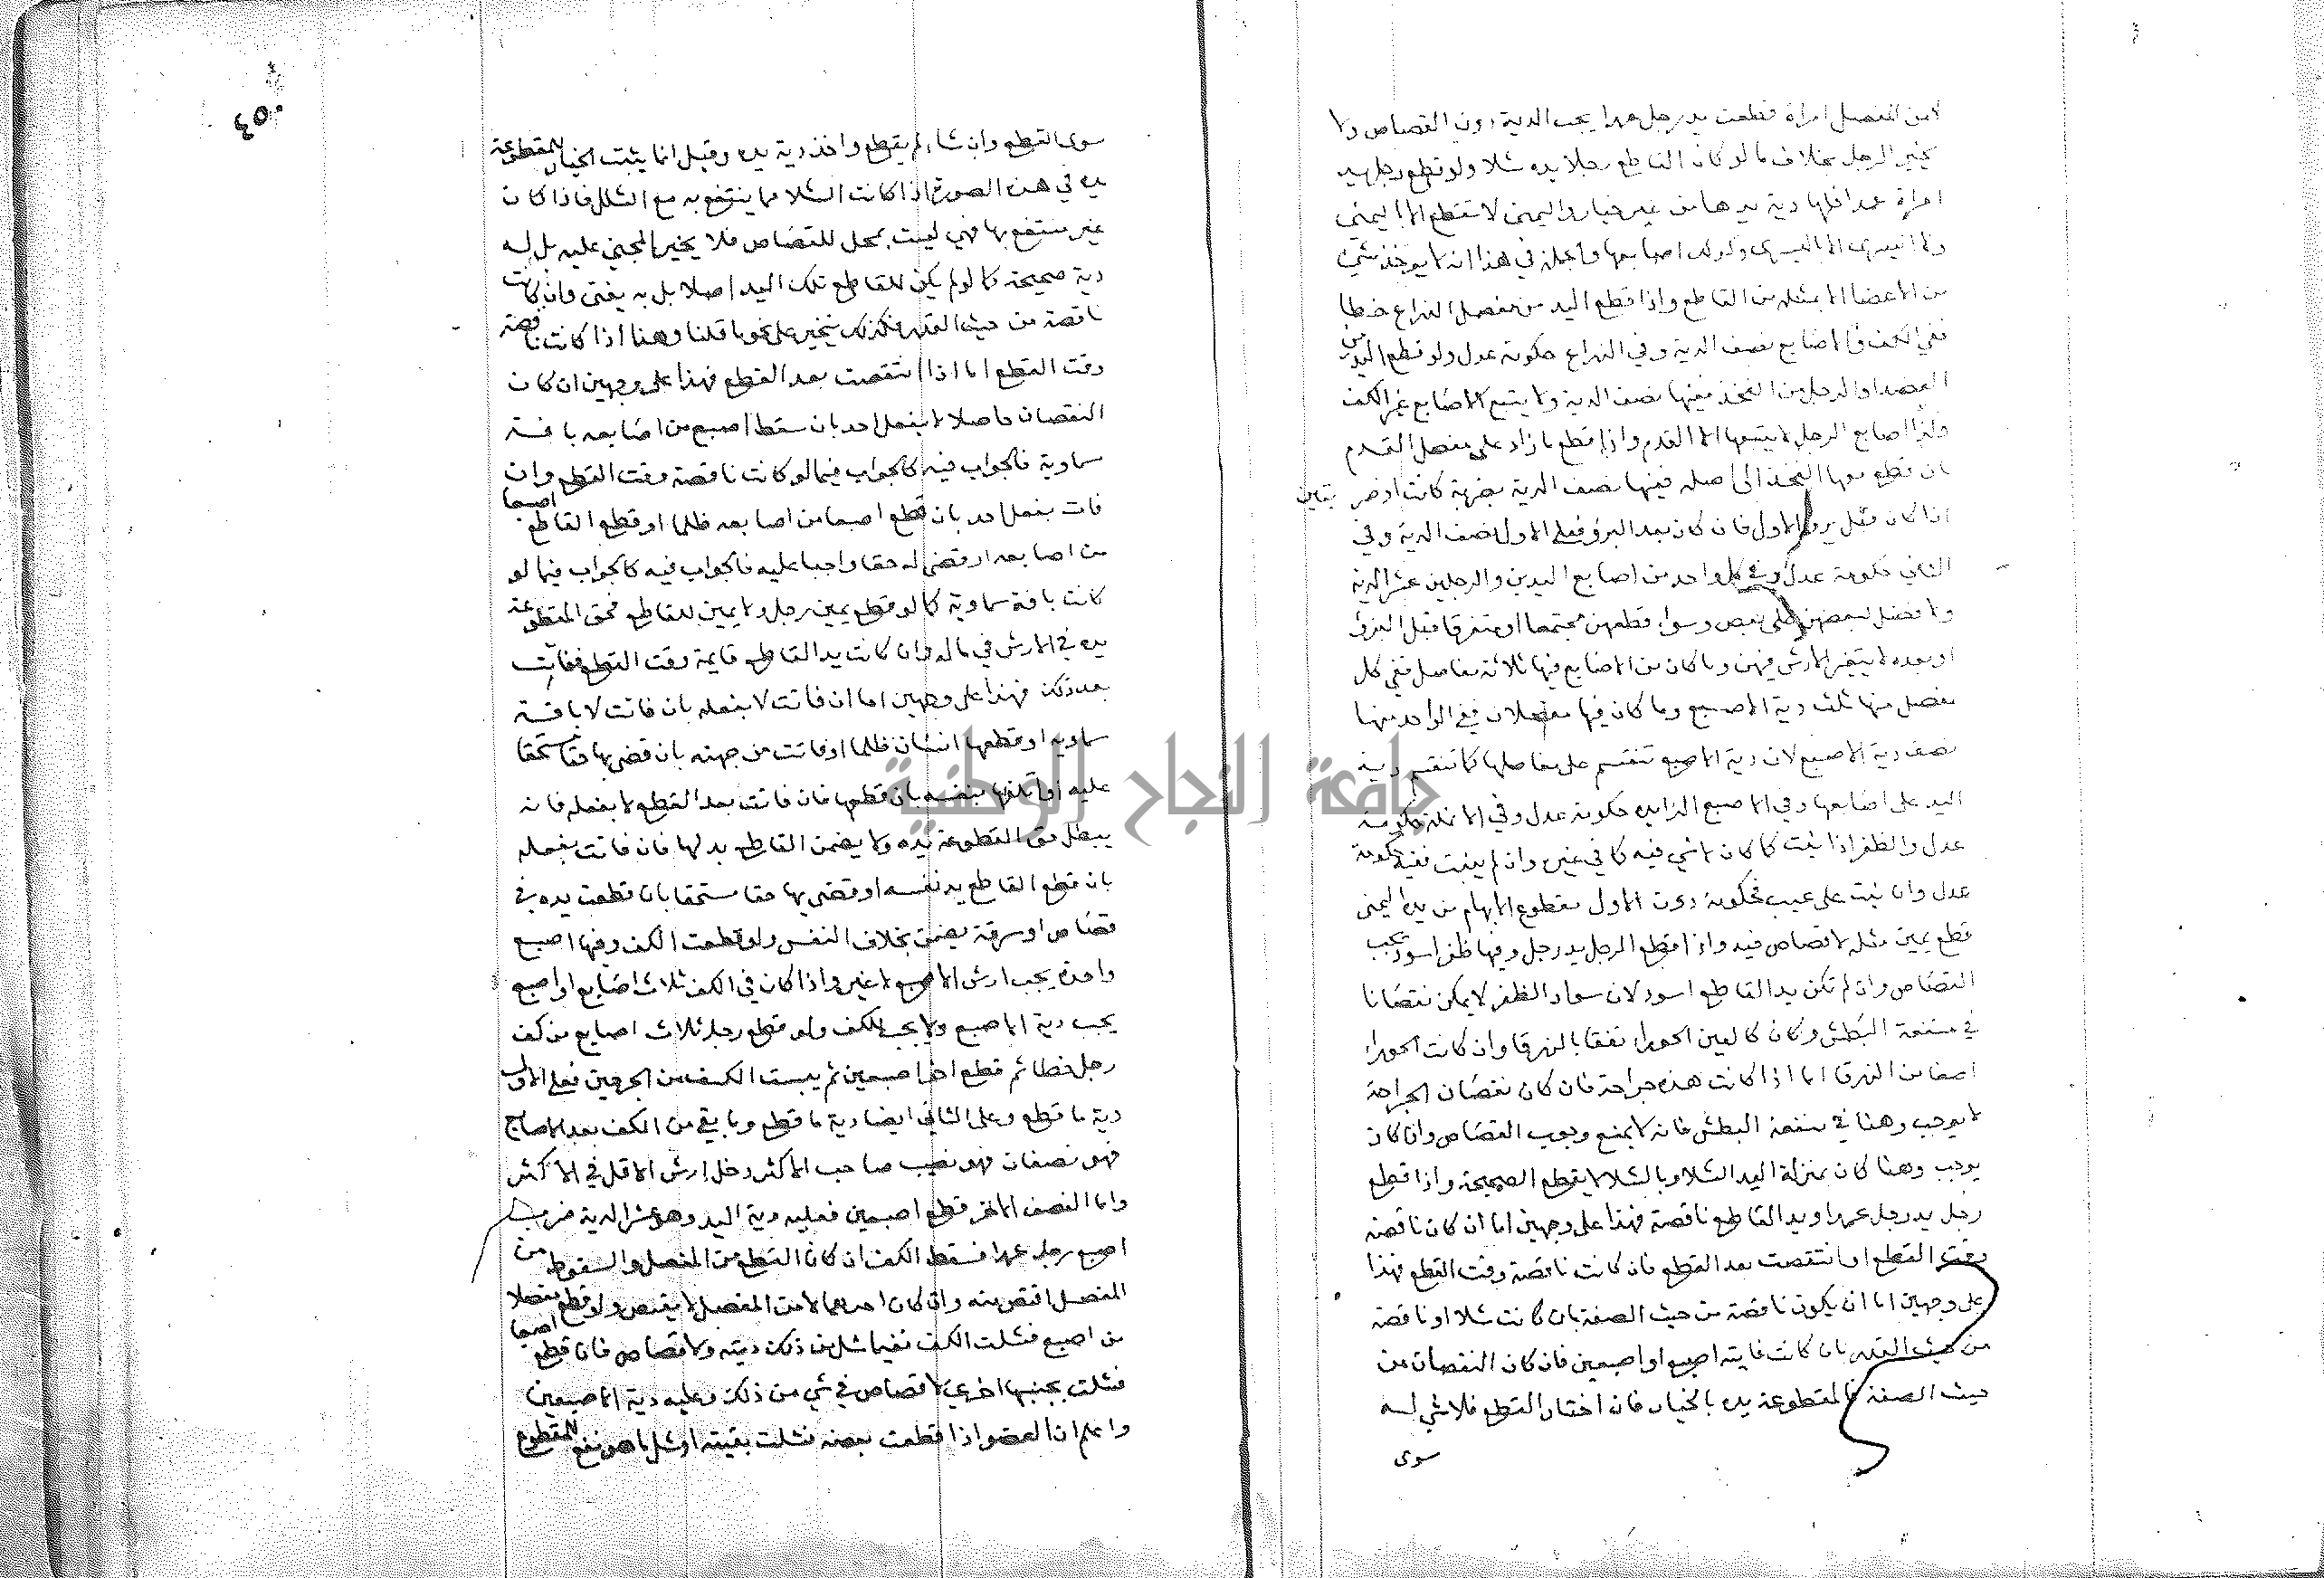 لامن المفصل امراة قطعت يد رجل عمدا يجب الدية دون القصاص ولا
يخير الرجل بخلاف ما لو كان القاطع رجلا يده شلا ولو قطع رجل يد
امراة عمدا فلها دية يدها من غير خيار واليمنى لا تقطع الا باليمنى
ولا اليسرى الا باليسرى وكذلك اصابعها والجملة في هذا انه لا يوخذ شي
من الاعضا الا بمثله من القاطع واذا قطع اليد من مفصل الذراع خطا
ففي الكف والاصابع نصف الدية وفي الذراع حكومة عدل ولو قطع اليد من
العضد او الرجل من الفخذ ففيها نصف الدية ولا يتبع الاصابع غير الكف
وكذا اصابع الرجل لا يتبعها الا القدم واذا قطع ما زاد على مفصل القدم
بان قطع معها الفخذ الى اصله ففيها نصف الدية بضربة كانت او ضربتين
اذا كان قبل برو الاول فان كان بعد البرؤ فعلى الاول نصف الدية وفي
الثاني حكومة عدل وفي كل واحد من اصابع اليدين والرجلين عشر الدية
ولا فضل لبعضهن على بعض وسواء قطعهن مجتمعا او متفرقا قبل البرؤ
او بعده لا يتغير الارش فيهن وما كان من الاصابع فيها ثلاثة مفاصل ففي كل
مفصل منها ثلث دية الاصبع وما كان فيها مفصلان ففي الواحد منها
نصف دية الاصبع لان دية الاصبع تنقسم على مفاصلها كما تنقسم دية
اليد على اصابعها وفي الاصبع الزايدة حكومة عدل وفي الانملة حكومة
عدل والظفر اذا نبت كما كان لا شي فيه كما في غيره وان لم ينبت ففيه حكومة
عدل وان نبت على عيب فحكومة دون الاول مقطوع الابهام من يده اليمنى
قطع يمين مثله لا قصاص فيه واذا قطع الرجل يد رجل وفيها ظفر اسود يجب
القصاص وان لم تكن يد القاطع اسود لان سواد الظفر لا يمكن نقصانا
في منفعة البطش وكان كالعين الحوراء تفقا بالزرقا وان كانت الحوراء
اصفا من الزرقا اما اذا كانت هذه جراحة فان كان نقصان الجراحة
لا يوجب وهنا في منفعة البطش فانه لا يمنع وجوب القصاص وان كان
يوجب وهنا كان بمنزلة اليد الشلا وبالشلا لا يقطع الصحيحة واذا قطع
رجل يد رجل عمدا ويد القاطع ناقصة فهذا على وجهين اما ان كان ناقصة
وقت القطع او انتقصت بعد القطع فان كانت ناقصة وقت القطع فهذا
على وجهين اما ان يكون ناقصة من حيث الصفة بان كانت شلا او ناقصة
من حيث القدر بان كانت فايته اصبع او اصبعين فان كان النقصان من
حيث الصفة فالمقطوعة يده بالخيار فان اختار القطع فلا شي له
سوى
٤٥٠
سوى القطع وان شاء لم يقطع واخذ دية يده وقيل انما يثبت الخيار للمقطوعة
يده في هذه الصورة اذا كانت الشلا مما ينتفع به مع الشلل فاذا كان
غير منتفع بها فهي ليست بمحل للقصاص فلا يخير المجني عليه بل له
دية صحيحة كما لو لم يكن للقاطع تلك اليد اصلا بل به يفتى وان كانت
ناقصة من حيث القدر فكذلك يتخير على نحو ما قلنا وهنا اذا كانت ناقصة
وقت القطع اما اذا انتقصت بعد القطع فهذا على وجهين ان كان
النقصان حاصلا لا بفعل احد بان سقط اصبع من اصابعه بافة
سماوية فالجواب فيه كالجواب فيما لو كانت ناقصة وقت القطع وان
فات بفعل احد بان قطع اصبعا من اصابعه ظلما او قطع القاطع اصبعا
من اصابعه او قضى له حقا واجبا عليه فالجواب فيه كالجواب فيما لو
كانت بافة سماوية كما لو قطع يمين رجل ولا يمين للقاطع فحق المقطوعة
يده في الارش في ماله وان كانت يد القاطع قايمة وقت القطع ففاتت
بعد ذلك فهذا على وجهين اما ان فاتت لا بفعله بان فاتت لا بافة
سماوية او قطعها انسان ظلما او فاتت من جهته بان قضى بها حقا مستحقا
عليه او اتلفها بنفسه بان قطعها فان فاتت بعد القطع لا بفعله فانه
يبطل حق المقطوعة يده ولا يضمن القاطع بدلها فان فاتت بفعله
بان قطع القاطع يد نفسه او قضى بها حقا مستحقا بان قطعت يده في
قصاص او سرقة يضمن بخلاف النفس ولو قطعت الكف وفيها اصبع
واحدة يجب ارش الاصبع لا غير واذا كان في الكف ثلاث اصابع او اصبع
يجب دية الاصبع ولا يجب للكف ولو قطع رجل ثلاث اصابع من كف
رجل خطا ثم قطع اخر اصبعين ثم يبست الكف من الجرحين فعلى الاول
دية ما قطع وعلى الثاني ايضا دية ما قطع وما بقي من الكف بعد الاصابع
فهو نصفان فهو نصيب صاحب الاكثر دخل ارش الاقل في الاكثر
واما النصف الاخر قطع اصبعين فعليه دية اليد وهو عشر الدية ضرب
اصبع رجل عمدا فسقط الكف ان كان القطع من المفصل والسقوط من
المفصل اقتص منه وان كان احدهما لا من المفصل لا يقتص ولو قطع مفصلا
من اصبع فشلت الكف ففيما شل من ذلك ديته ولا قصاص فان قطع اصبعا
فشلت بجنبها اخرى لا قصاص في شي من ذلك وعليه دية الاصبعين
واعلم ان العضو اذا قطعت بعضه فشلت بقيته او شل ما هو نفع للمقطوع
جامعة النجاح الوطنية